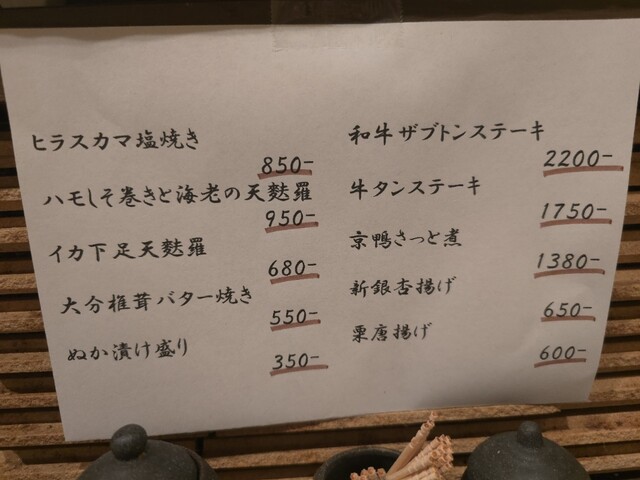 ヒラスカマ塩焼き
850-
ハモしそ巻きと海老の天麩羅
950-
イカ下足天麩羅
680-
大分椎茸バター焼き
550-
ぬか漬け盛り
350-
和牛ザブトンステーキ
2200-
牛タンステーキ
1750-
京鴨さっと煮
1380-
新銀杏揚げ
650-
栗唐揚げ
600-